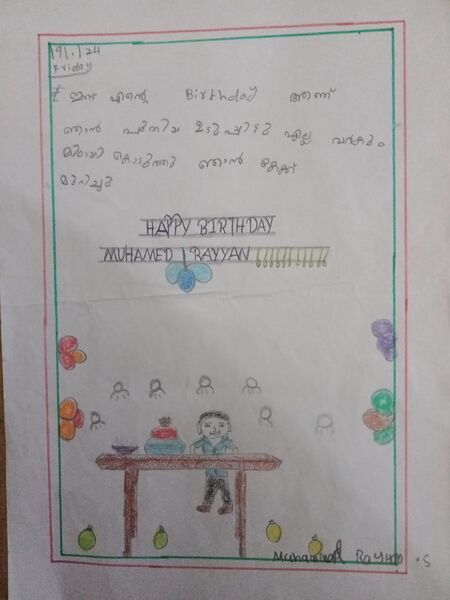 19/1/24
Friday
ഇന്ന് എന്റെ Birthday ആണ്
ഞാൻ പുതിയ ഉടുപ്പിട്ടു എല്ലാ വർകും
മിഠായി കൊടുത്തു ഞാൻ കേക്ക്
മുറിച്ചു
HAPPY BIRTHDAY
MUHAMED RAYYAN
Muhammad Rayyan .S